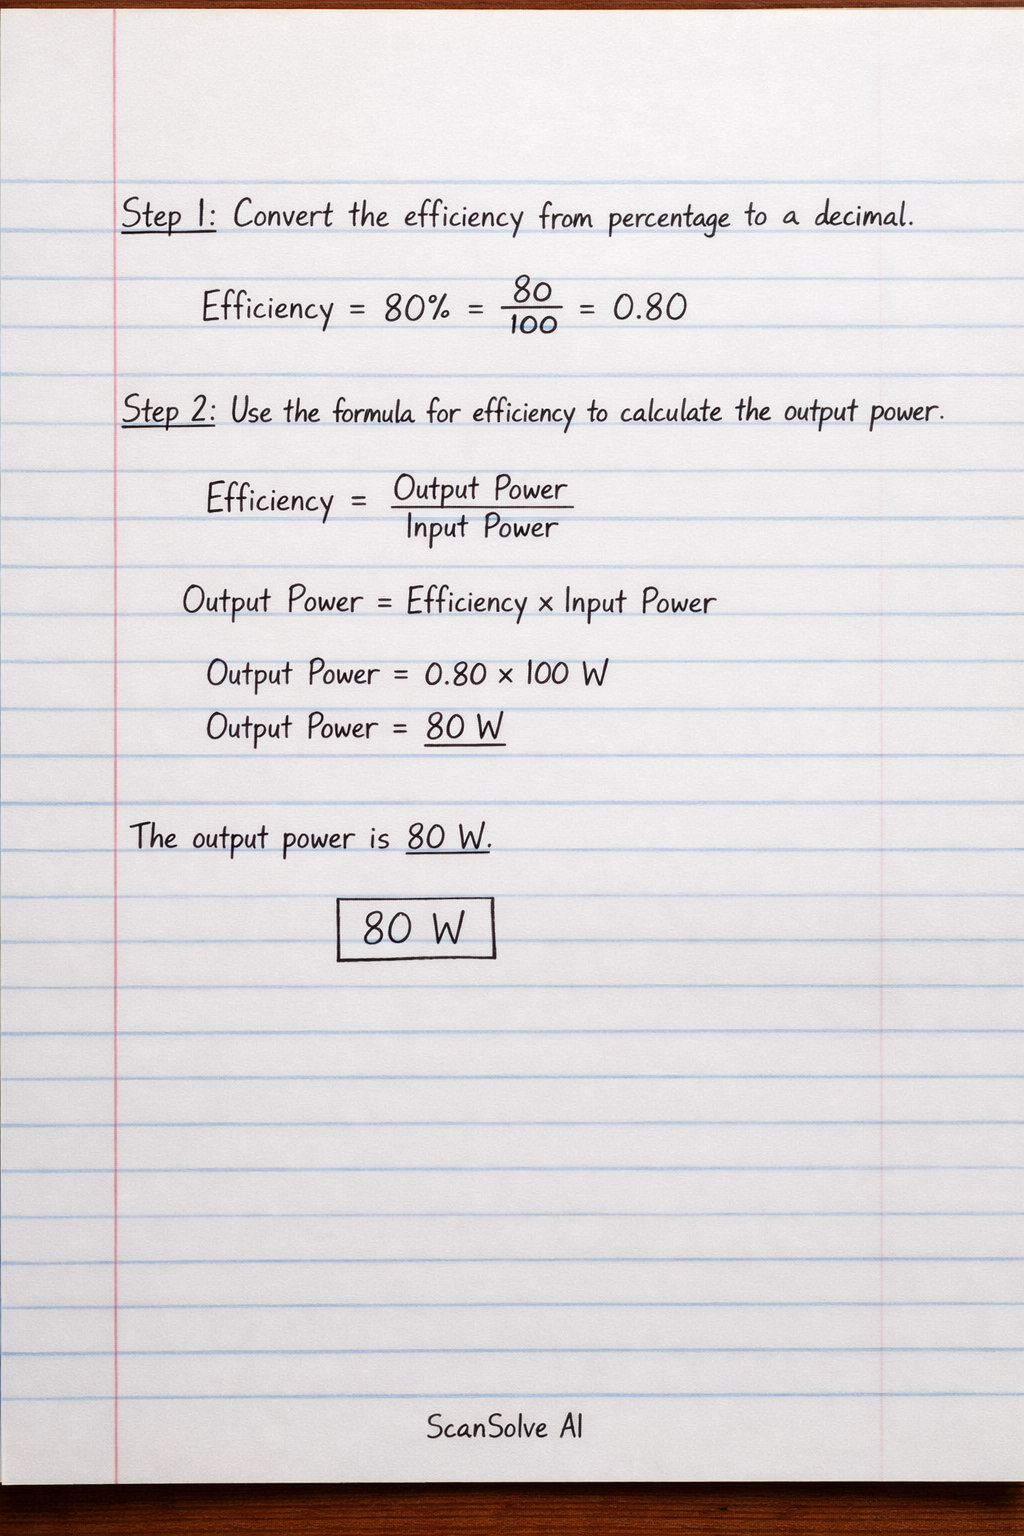 Step 1: Convert the efficiency from percentage to a decimal.
Efficiency = 80% = 80/100 = 0.80
Step 2: Use the formula for efficiency to calculate the output power.
Efficiency = Output Power / Input Power
Output Power = Efficiency × Input Power
Output Power = 0.80 × 100 W
Output Power = 80 W
The output power is 80 W.
80 W
ScanSolve AI